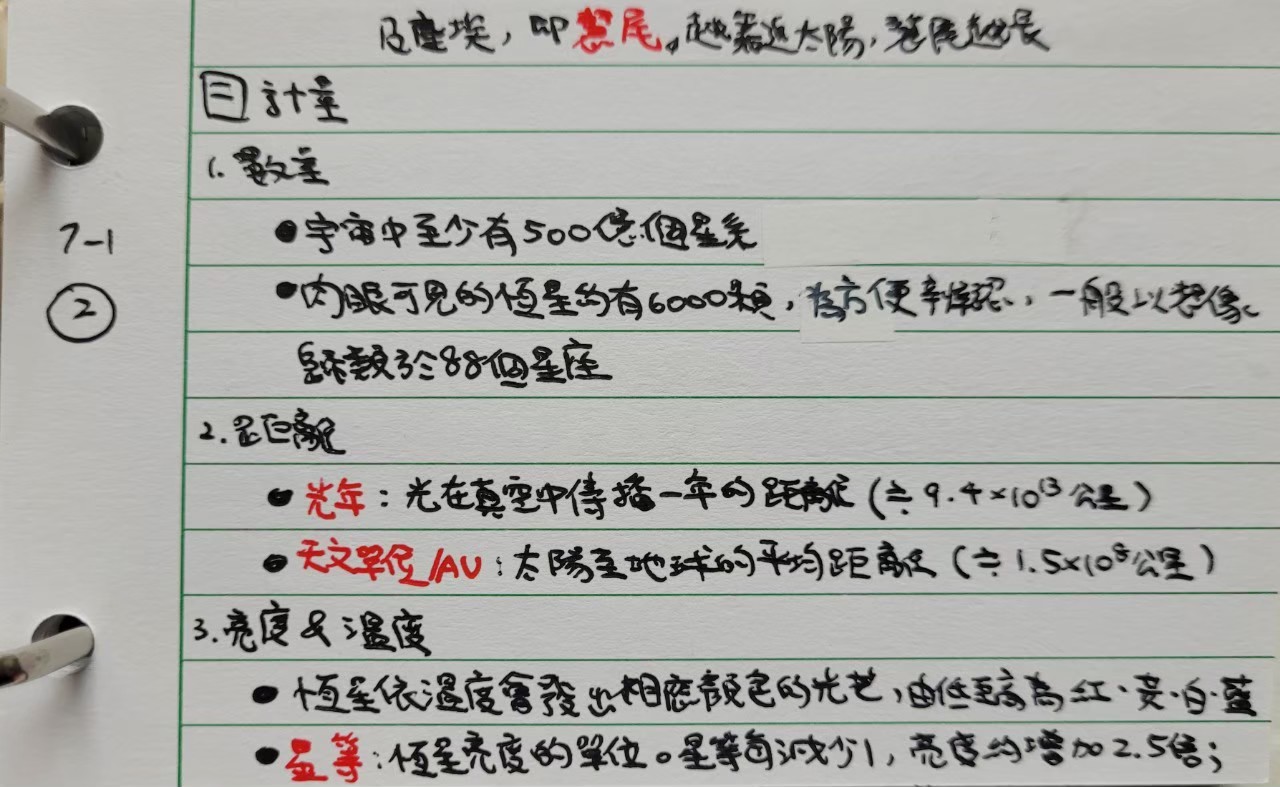 及塵埃，即彗尾。越靠近太陽，彗尾越長
三 計量
1. 數量
●宇宙中至少有500億個星系
7-1
●肉眼可見的恆星約有6000顆，為方便辨認，一般以想像
②
歸類於88個星座
2. 距離
●光年：光在真空中傳播一年的距離（≒9.4×10¹³公里）
●天文單位/AU：太陽至地球的平均距離（≒1.5×10⁸公里）
3. 亮度&溫度
●恆星依溫度會發出相應顏色的光芒，由低至高為紅、黃、白、藍
●星等：恆星亮度的單位。星等每減少1，亮度約增加2.5倍；